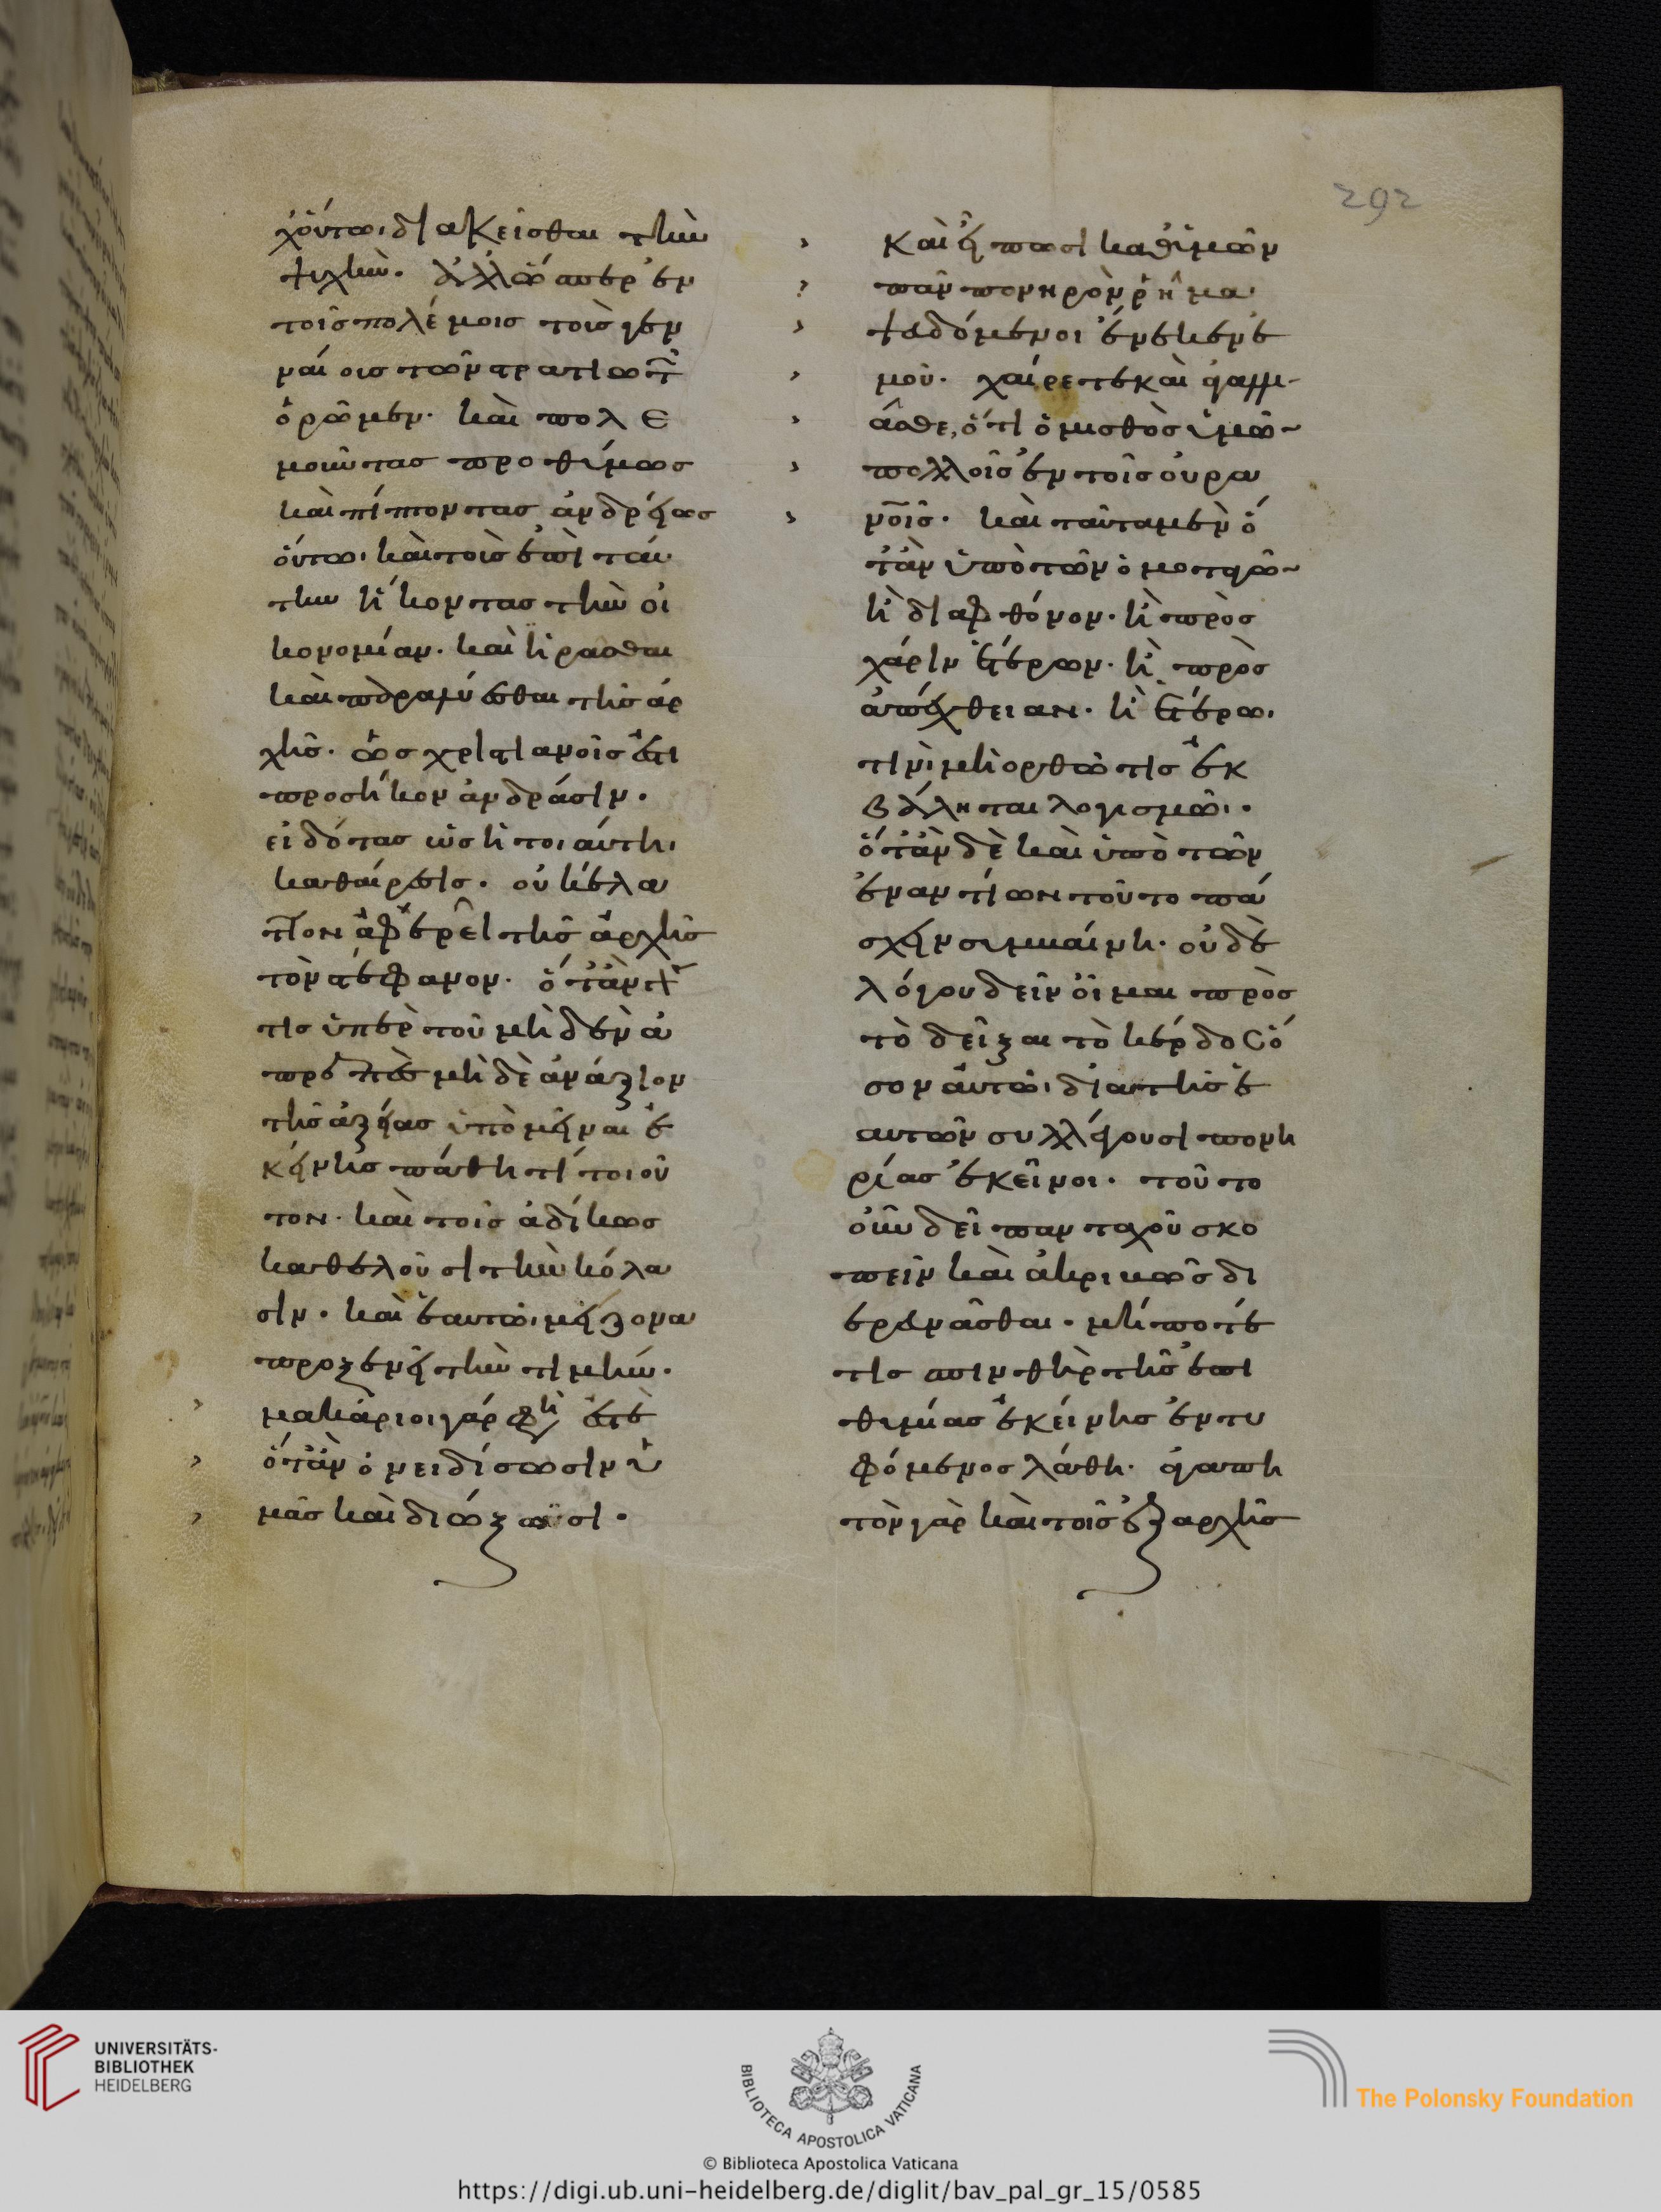 χ' οὕτω διακεῖσθαι τὴν
ψυχήν. ἀλλ' ὥσπερ ἐν
τοῖς πολέμοις τοὺς γεν
ναίους τῶν στρατιωτ
ὁρῶμεν. καὶ πολε
μοῦντας προθύμως
καὶ πίπτοντας ἀνδρείως
οὕτω καὶ τοὺς ἐπὶ ταύ
την ἥκοντας τὴν οἰ
κονομίαν. καὶ ἱερᾶσθαι
καὶ παραλύεσθαι τῆς ἀρ
χῆς. ὡς χριστιανοῖς ἐστι
προσῆκον ἀνδράσιν.
εἰδότας ὡς ἡ τοιαύτη
καθαίρεσις. οὐκ ἔλατ
τον φέρει τῆς ἀρχῆς
τὸν στέφανον. ὅταν γάρ
τις ὑπὲρ τοῦ μηδὲν ἀ
πρεπὲς μηδὲ ἀνάξιον
τῆς ἀξίας ὑπομεῖναι ἐ
κείνης πάθη τι τοιοῦ
τον. καὶ τοῖς ἀδίκως
καθελοῦσι τὴν κόλα
σιν. καὶ ἑαυτῶ μείζονα
προξενεῖ τὴν τιμήν.
μακάριοι γάρ φη ἐστὲ
ὅταν ὀνειδίσωσιν ὑ
μᾶς καὶ διώξωσι.
καὶ εἴπωσι καθ' ὑμῶν
πᾶν πονηρὸν ῥῆμα
ψευδόμενοι ἕνεκεν ἐ
μοῦ. χαίρετε καὶ ἀγαλλι
ᾶσθε, ὅτι ὁ μισθὸς ὑμῶ
πολὺς ἐν τοῖς οὐρα
νοῖς. καὶ ταῦτα μὲν ὅ
ταν ὑπὸ τῶν ὁμοταγῶ
ἢ διὰ φθόνον. ἢ πρὸς
χάριν ἑτέρων. ἢ πρὸς
ἀπέχθειαν. ἢ ἑτέρω
τινὶ μὴ ὀρθῶ τις ἐκ
βάλληται λογισμῶ.
ὅταν δὲ καὶ ὑπὸ τῶν
ἐναντίων τοῦτο πά
σχειν συμβαίνη. οὐδὲ
λόγου δεῖν οἶμαι πρὸς
τὸ δεῖξαι τὸ κέρδος ὅ
σον αὐτῶ διὰ τῆς ἑ
αυτῶν συλλέγουσι πονη
ρίας ἐκεῖνοι. τοῦτο
οὖν δεῖ πανταχοῦ σκο
πεῖν καὶ ἀκριβῶς δι
ερευνᾶσθαι. μήποτέ
τις σπινθὴρ τῆς ἐπι
θυμίας ἐκείνης ἐντυ
φόμενος λάθη. ἀγαπη
τὸν γὰρ καὶ τοῖς ἐξ αρχῆς
292
UNIVERSITÄTS-
BIBLIOTHEK
HEIDELBERG
BIBLIOTECA APOSTOLICA VATICANA
The Polonsky Foundation
© Biblioteca Apostolica Vaticana
https://digi.ub.uni-heidelberg.de/diglit/bav_pal_gr_15/0585